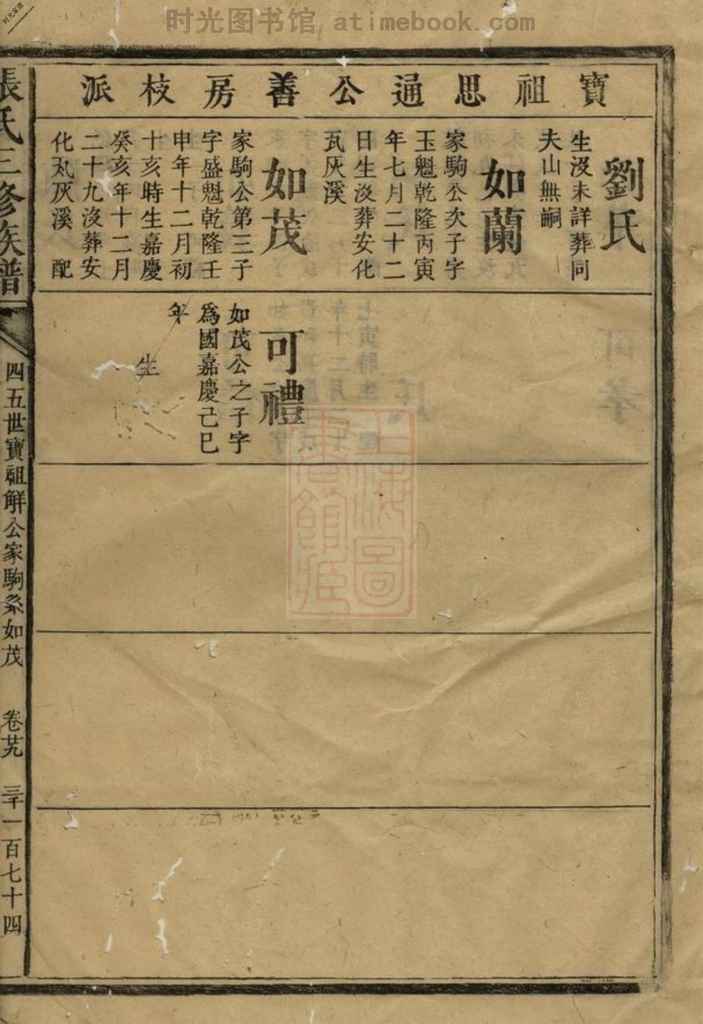 时光图书馆 atimebook.com
寶祖思通公善房枝派
劉氏
生沒未詳葬同
夫山無嗣
如蘭
家駒公次子字
玉魁乾隆丙寅
年七月二十二
日生沒葬安化
瓦灰溪
如茂
家駒公第三子
字盛魁乾隆壬
申年十二月初
十亥時生嘉慶
癸亥年十二月
二十九沒葬安
化瓦灰溪 配
可禮
如茂公之子字
為國嘉慶己巳
年
生
張氏三修族譜
四五世寶祖解公家駒系如茂
卷廿九
三千一百七十四